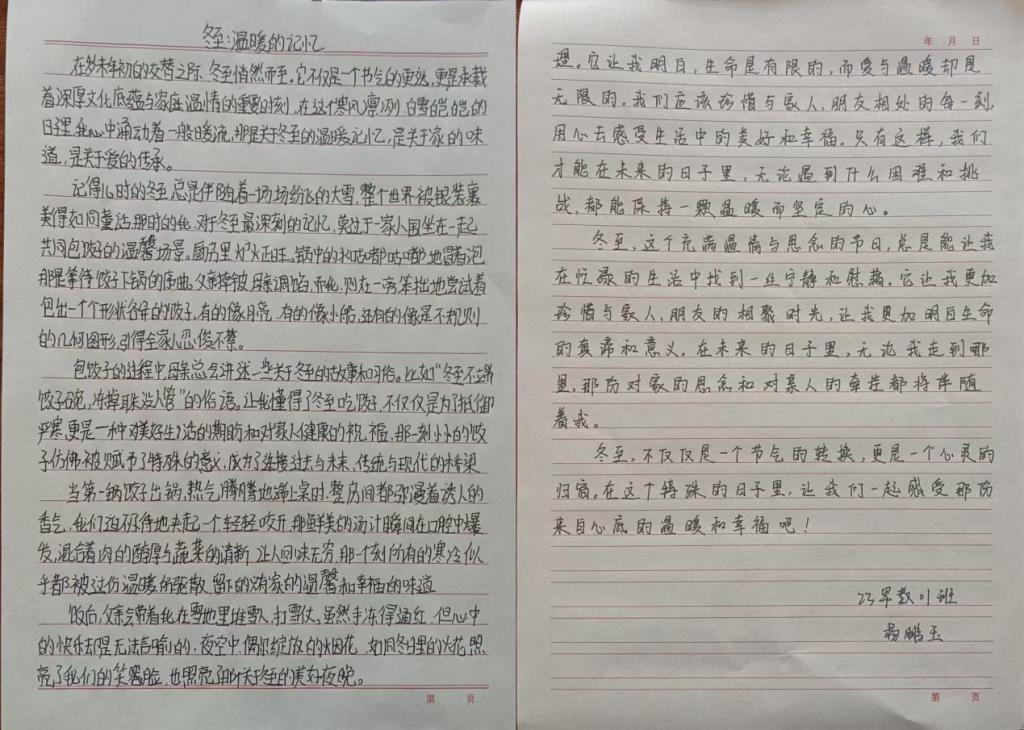 冬至:温暖的记忆
在岁末年初的交替之际、冬至悄然而至。它不仅是一个节气的更迭,更是承载
着深厚文化底蕴与家庭温情的重要时刻。在这个寒风凛冽、白雪皑皑的
日子里,我心中涌动着一股暖流,那是关于冬至的温暖记忆,是关于家的味
道,是关于爱的传承。
记得儿时的冬至总是伴随着一场场纷纷的大雪,整个世界被银装裹
美得如同童话,那时的我,对于冬至最深刻的记忆,莫过于一家人围坐在一起
共同包饺子的温馨场景。厨房里炉火正旺。锅中的水咕嘟咕嘟地冒着泡
那是等待饺子下锅的序曲。父亲擀皮母亲调馅,而我,则在一旁笨拙地尝试着
包出一个个形状各异的饺子,有的像月亮 有的像小船,还有的像是不规则
的几何图形,引得全家人忍俊不禁。
包饺子的过程中,母亲总会讲述一些关于冬至的故事和习俗。比如“冬至不端
饺子碗,冻掉耳朵没人管”的俗语。让我懂得了冬至吃饺子,不仅仅是为了抵御
严寒,更是一种对美好生活的期盼和对家人健康的祝福,那一刻小小的饺
子仿佛被赋予了特殊的意义,成为了连接过去与未来,传统与现代的桥梁
当第一锅饺子出锅,热气腾腾地端上桌时,整房间都弥漫着诱人的
香气,我们迫不及待地夹起一个,轻轻咬开,那鲜美的汤汁瞬间在口腔中爆
发,混合着肉的醇厚与蔬菜的清新,让人回味无穷 那一个刻,所有的寒冷似
乎都被这份温暖所驱散,留下的只有家的温馨和幸福的味道
饭后,父亲会带着我在雪地里堆雪人、打雪仗。虽然手冻得通红,但心中
的快乐却是无法言喻的。夜空中,偶尔绽放的烟花 如同冬日里的火花,照
亮了我们的笑脸,也照亮了那个关于冬至的美好夜晚。
年 月 日
理。它让我明白,生命是有限的,而爱与温暖却是
无限的。我们应该珍惜与家人、朋友相处的每一刻,
用心去感受生活中的美好和幸福。只有这样,我们
才能在未来的日子里,无论遇到什么困难和挑
战,都能保持一颗温暖而坚定的心。
冬至,这个充满温情与思念的节日,总是能让我
在忙碌的生活中找到一丝宁静和慰藉。它让我更加
珍惜与家人、朋友的相聚时光,让我更加明白生命
的真谛和意义。在未来的日子里,无论我走到哪
里,那份对家的思念和对亲人的牵挂都将伴随
着我。
冬至,不仅仅是一个节气的转换,更是一个心灵的
归宿。在这个特殊的日子里,让我们一起感受那份
来自心底的温暖和幸福吧!
23早教01班
杨鹏玉
第 页
第 页